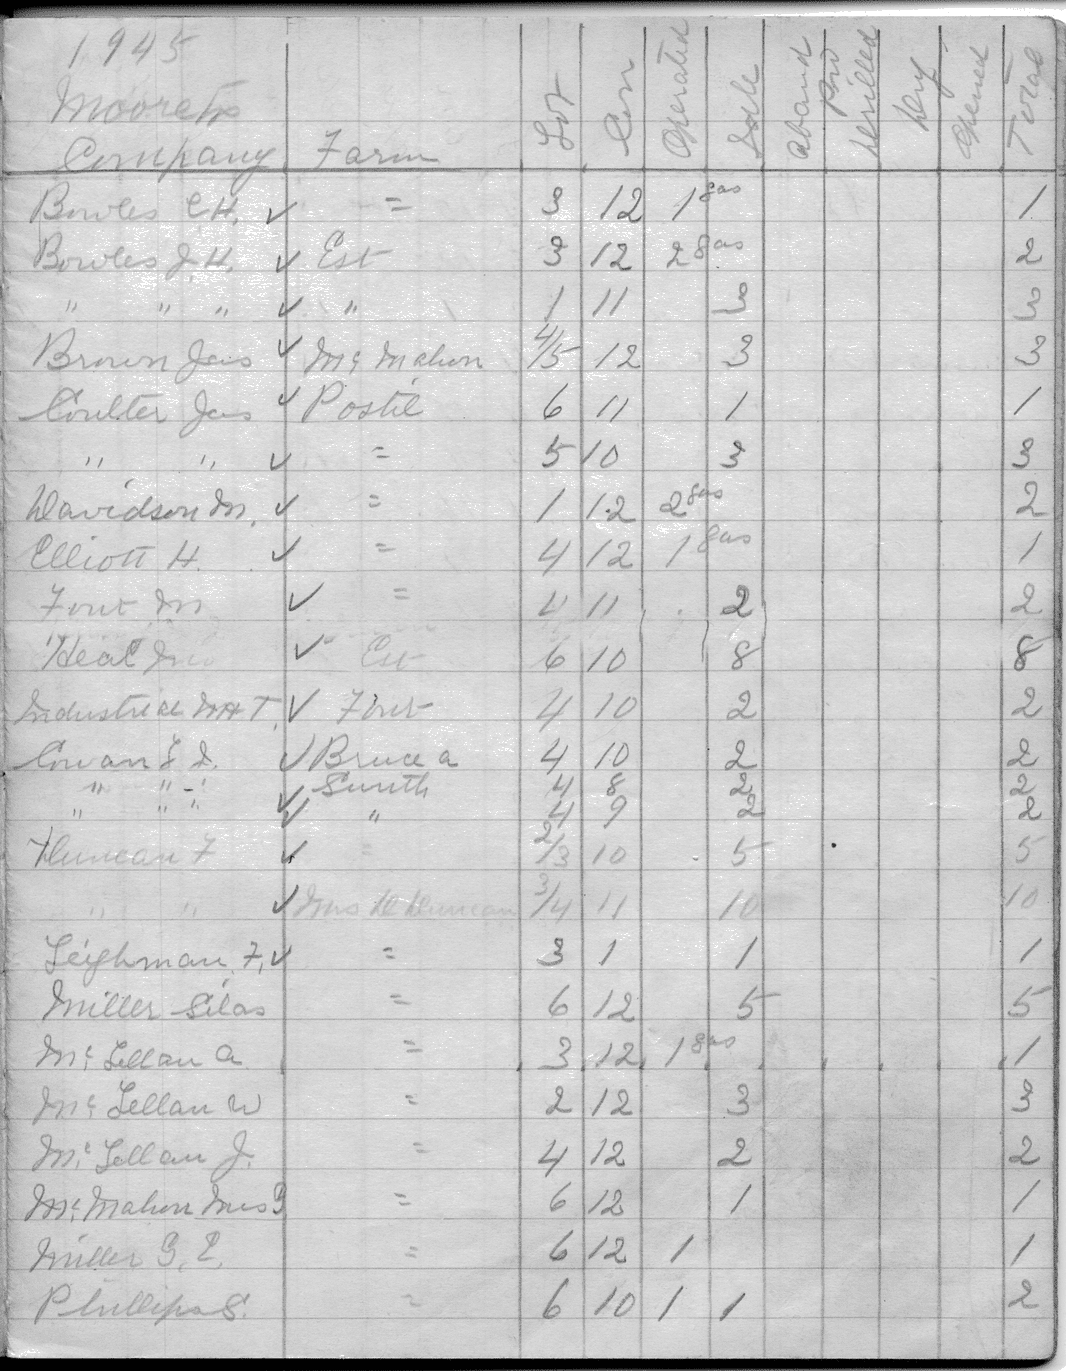 1945
Moore Tp
Company Farm Lot Con Operated Idle Aband Pro Drilled Dry Opened Total
Bowles C.H. ✓ = 3 12 1 gas 1
Bowles J.H. ✓ Est 3 12 2 gas 2
" " " ✓ " 1 11 3 3
Brown Jas ✓ Mc Mahon 4/5 12 3 3
Coulter Jas ✓ Postil 6 11 1 1
" " ✓ = 5 10 3 3
Davidson M. ✓ = 1 12 2 gas 2
Elliott H. ✓ = 4 12 1 gas 1
Font M ✓ = 4 11 2 2
Heal ✓ Est 6 10 8 8
Industrial T. ✓ Font 4 10 2 2
Cowan ✓ Bruce A 4 10 2 2
" " " ✓ Smith 4 8 2 2
" " " ✓ " 4 9 2 2
Duncan F ✓ = 2/3 10 5 5
" " ✓ Mrs D Duncan 3/4 11 10 10
Leighman F. ✓ = 3 1 1 1
Miller Silas = 6 12 5 5
Mc Lellan A = 3 12 1 gas 1
Mc Lellan W = 2 12 3 3
Mc Lellan J. = 4 12 2 2
Mc Mahon Mrs G = 6 12 1 1
Miller G. E. = 6 12 1 1
Phillips S. = 6 10 1 1 2